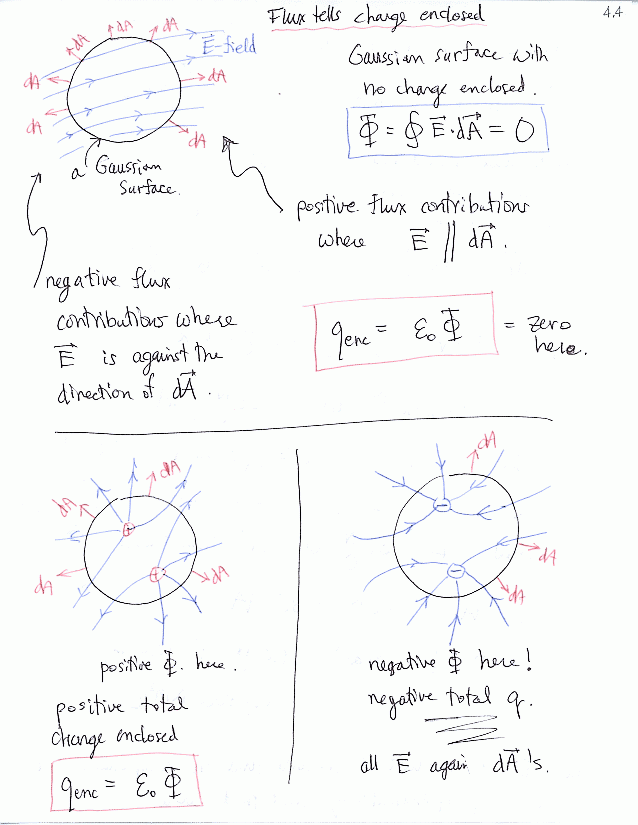 Flux tells charge enclosed
4.4
dA
dA
dA
dA
dA
dA
dA
E⃗-field
a Gaussian
Surface.
Gaussian surface with
no charge enclosed.
Φ = ∮ E⃗·dA⃗ = 0
positive flux contributions
where E⃗ // dA⃗.
negative flux
contributions where
E⃗ is against the
direction of dA⃗.
q_enc = ε₀ Φ = zero
here.
dA
dA
dA
dA
+
+
positive Φ here.
positive total
charge enclosed
q_enc = ε₀ Φ
dA
dA
dA
−
−
negative Φ here!
negative total q.
all E⃗ again dA⃗'s.